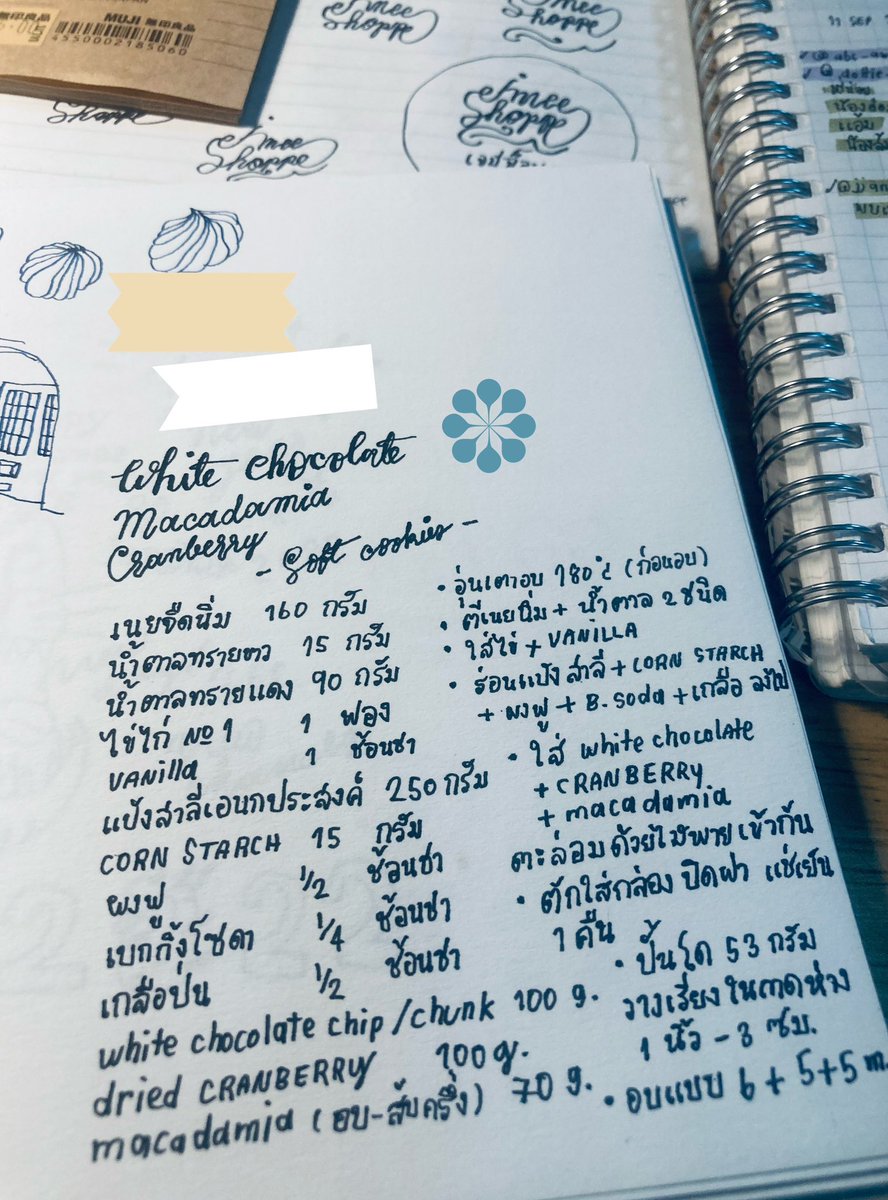 MUJI 無印良品
4550002185060
Jmee
Shoppe
Jmee
Shoppe
Jmee
Shoppe
Jmee
Shoppe
White chocolate
Macadamia
Cranberry
- Soft cookies -
เนยจืดนิ่ม 160 กรัม
น้ำตาลทรายขาว 75 กรัม
น้ำตาลทรายแดง 90 กรัม
ไข่ไก่ No 1 1 ฟอง
Vanilla 1 ช้อนชา
แป้งสาลีเอนกประสงค์ 250 กรัม
CORN STARCH 15 กรัม
ผงฟู 1/2 ช้อนชา
เบกกิ้งโซดา 1/4 ช้อนชา
เกลือป่น 1/2 ช้อนชา
white chocolate chip/chunk 100 g.
dried CRANBERRY 100 g.
macadamia (อบ-สับครึ่ง) 70 g.
• อุ่นเตาอบ 180°c (ก่อนอบ)
• ตีเนยนิ่ม + น้ำตาล 2 ชนิด
• ใส่ไข่ + VANILLA
• ร่อนแป้งสาลี + CORN STARCH
+ ผงฟู + B. Soda + เกลือ ลงไป
• ใส่ white chocolate
+ CRANBERRY
+ macadamia
ตะล่อมด้วยไม้พายเข้ากัน
• ตักใส่กล่อง ปิดฝา แช่เย็น
1 คืน
• ปั้นโด 53 กรัม
วางเรียงในถาดห่าง
1 นิ้ว - 3 ซม.
• อบแบบ 6 + 5+5 m.